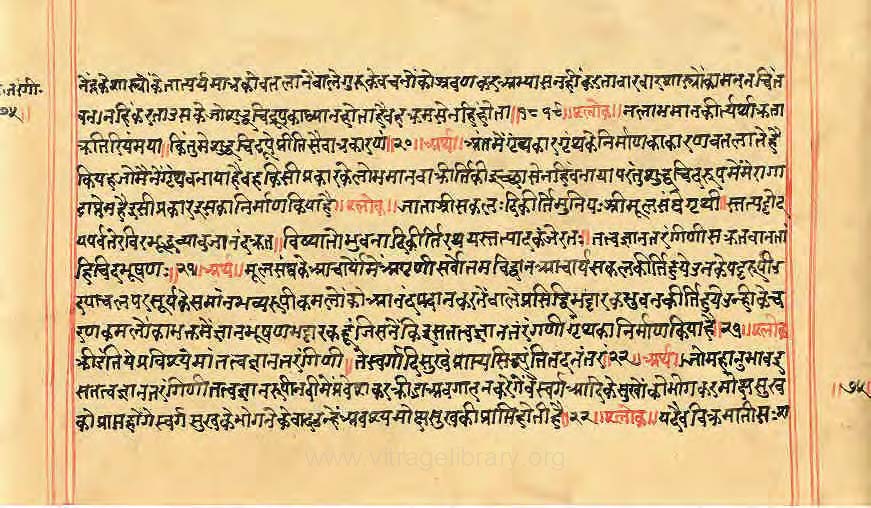 त.तरंगी.
७५
नेंद्रकेशास्त्रोंकेतात्पर्यमात्रकोवतलानेंवालेगुरूकेवचनोंकोश्रवणकरअभ्यासनहींकरतावारवारशास्त्रोंकामननचिंत
वन।नहिंकरताउसकेजोशुद्धचिद्रूपकाध्यानहोताहैवहक्रमसेनहिंहोता॥१९॥श्लोक॥नलाभमानकीर्त्यर्थाकृता
कृतिरियंमया॥किंतुमेशुद्धचिद्रूपेप्रीतिःसैवात्रकारणं॥२०॥अर्थ॥अंतमेंग्रंथकारग्रंथकेनिर्माणकाकारणवतलातेहैं
कियहजोमैनेंग्रंथवनायाहैवहकिसीप्रकारकेलोभमानवाकीर्तिकीइच्छासेनहिंवनायापरंतुशुद्धचिद्रूपमेंमेरागा
ढाप्रेमहैइसीप्रकारइसकानिर्माणकियाहै॥श्लोक॥जातःश्रीसकलादिकीर्तिमुनिपःश्रीमूलसंघेग्रणी॥स्तत्पट्टोद
यपर्वतेरविरभूद्भव्यांबुजानंदकृत॥विख्यातोभुवनादिकीर्तिरथयस्तत्पादकंजेरतः॥तत्त्वज्ञानतरंगिणींसकृतवानतां
हिचिदभूषणः॥२१॥अर्थ॥मूलसंघकेआचार्योंमेंअग्रणीसर्वोत्तमविद्वानआचार्यसकलकीर्तिहुयेउनकेपट्टरूपीउ
दयाचलपरसूर्यकेसमानभव्यरूपीकमलोंकोआनंदप्रदानकरनेंवालेप्रसिद्धभट्टारकभुवनकीर्तिहुयेउन्हीकेच
रणकमलोंकाभक्तमैंज्ञानभूषणभट्टारकहूंजिसनेंकिइसतत्वज्ञानतरंगणीग्रंथकानिर्माणकियाहै॥२१॥श्लोक
क्रीडंतियेप्रविश्येमांतत्वज्ञानतरंगिणीं॥तेस्वर्गादिसुखंप्राप्यसिद्ध्यंतितदनंतरं॥२२॥अर्थ॥जोमहानुभावइ
सतत्वज्ञानतरंगिणीतत्वज्ञानरूपीनदीमेंप्रवेशकरक्रीडाअवगाहनकरेंगेवेस्वर्गआदिकेसुखोंकोभोगकरमोक्षसुख
कोप्राप्तहोंगेस्वर्गसुखकेभोगनेंकेवादउन्हेंअवश्यमोक्षसुखकीप्राप्तिहोतीहै॥२२॥श्लोक॥यदैवविक्रमातीताः॥श
॥७५
www.vitragelibrary.org